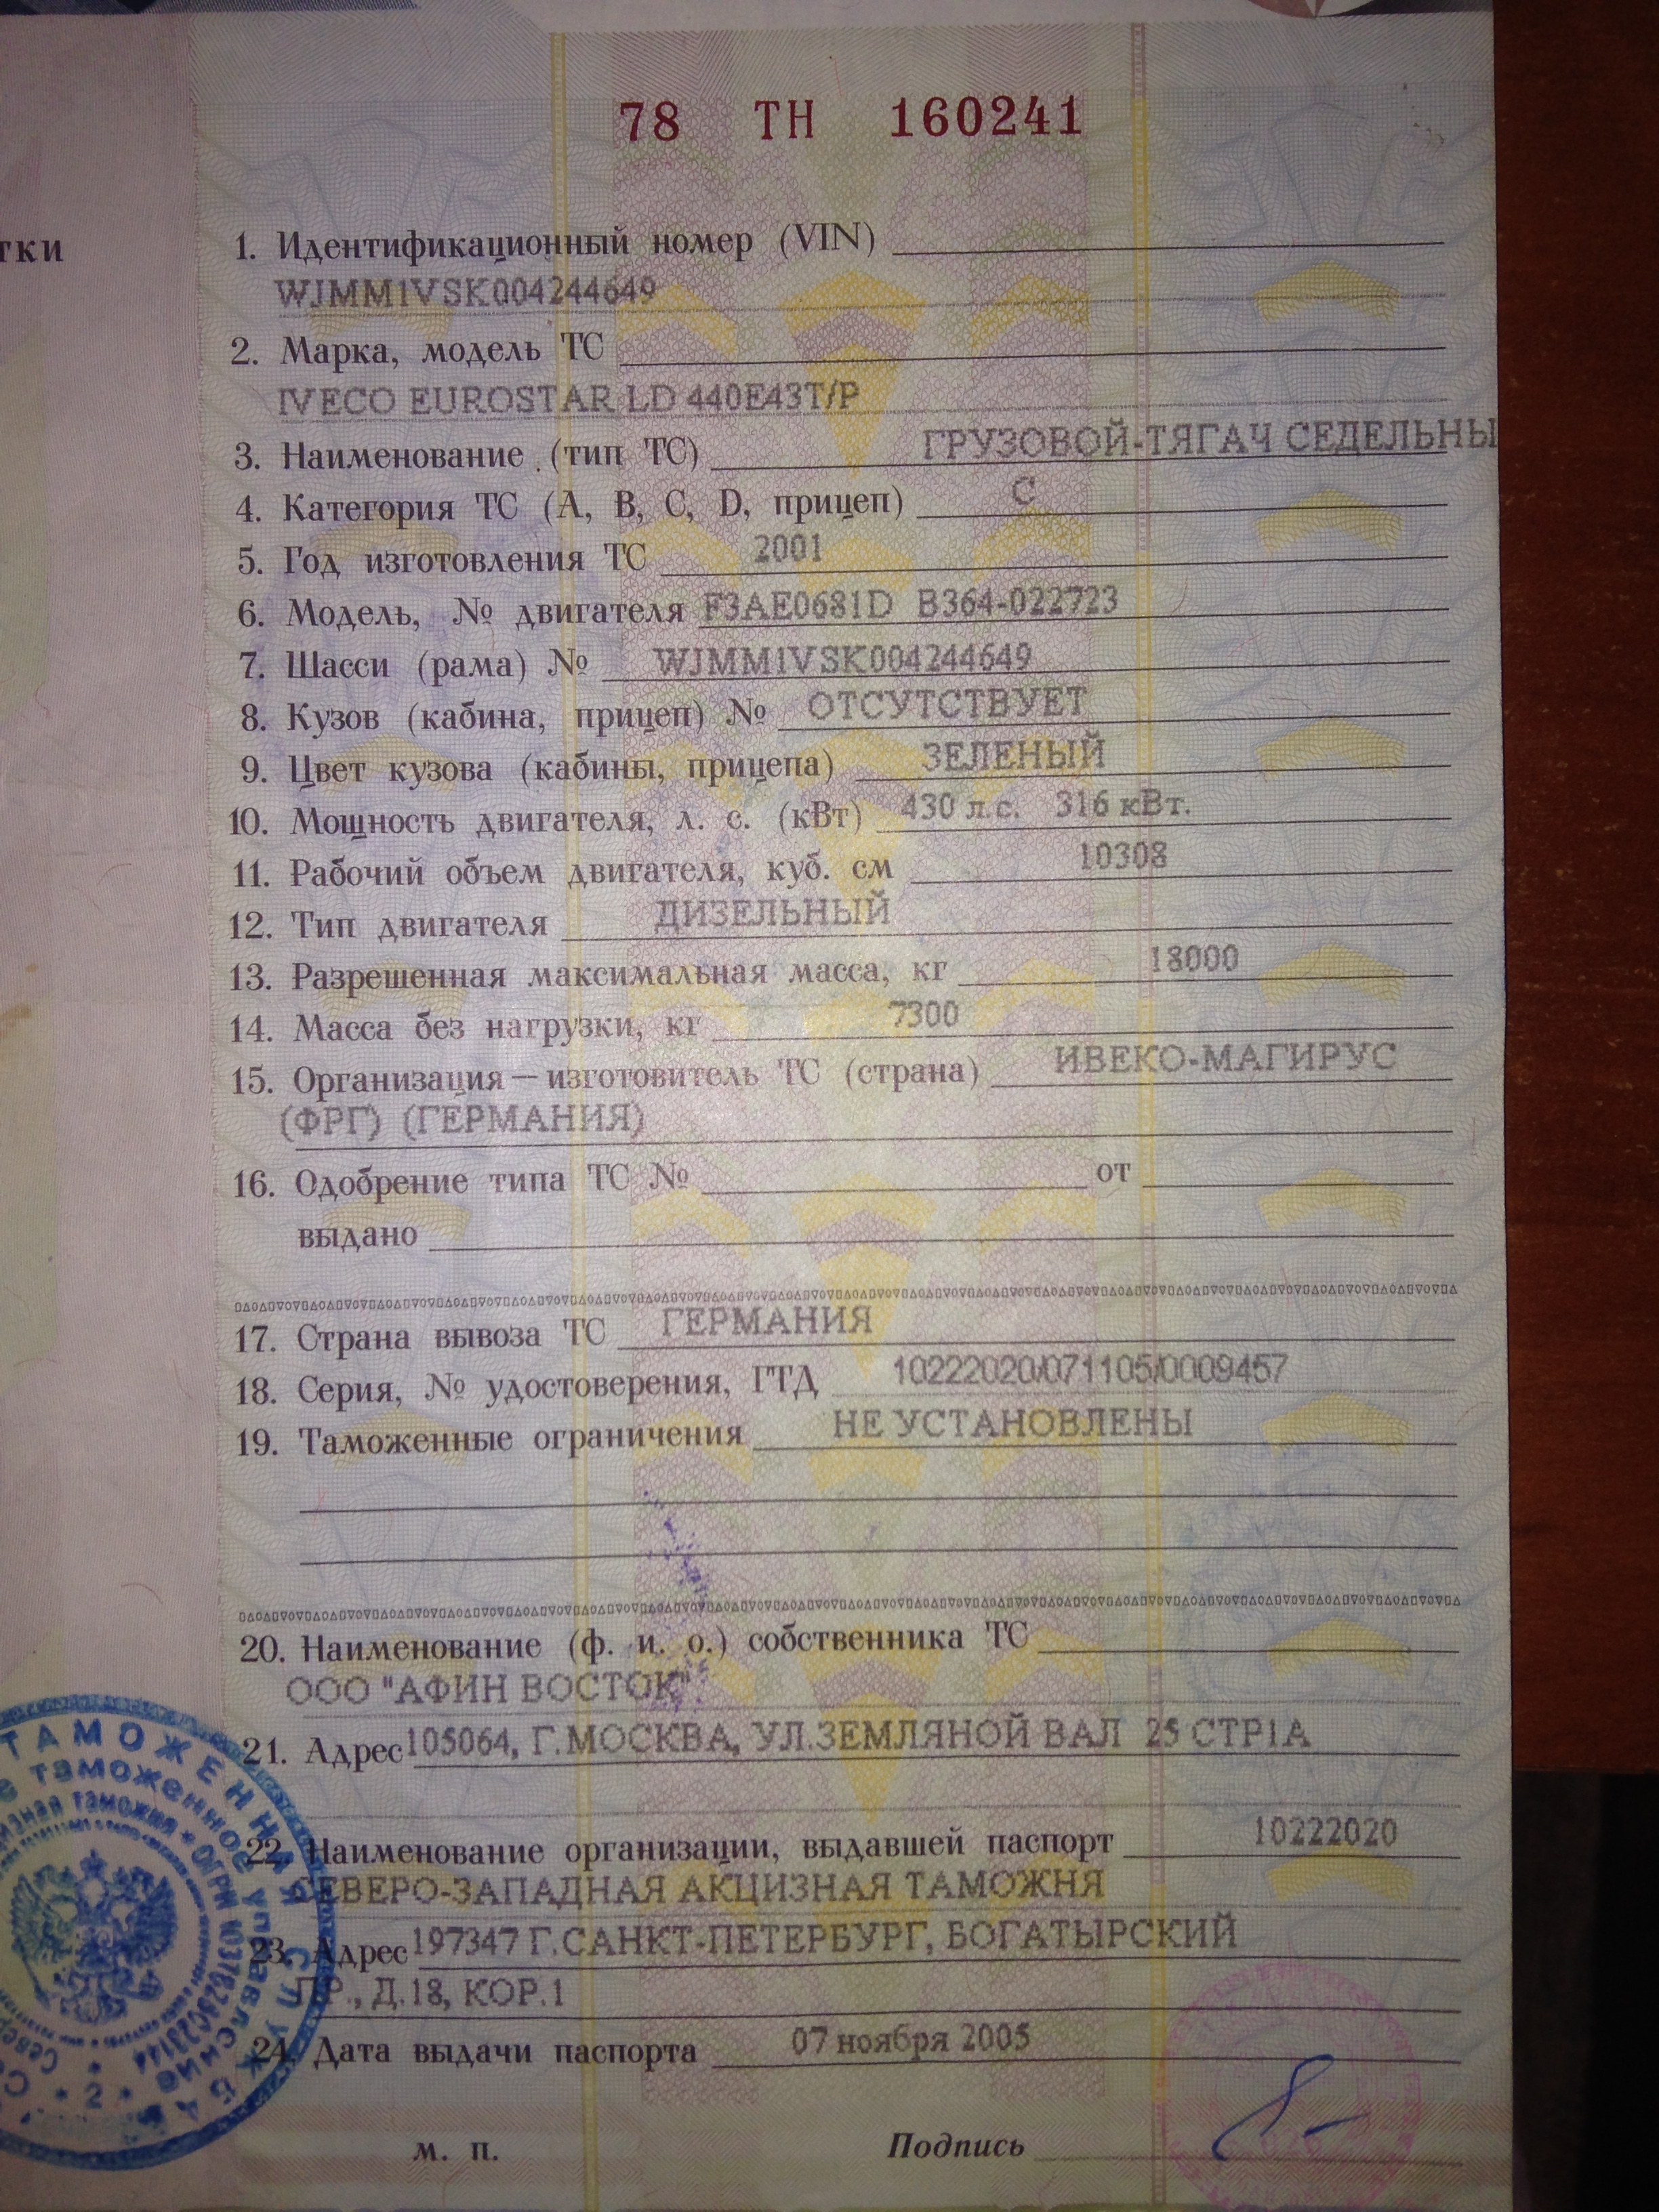 78 ТН 160241
тки
1. Идентификационный номер (VIN)
WJMM1VSK004244649
2. Марка, модель ТС
IVECO EUROSTAR LD 440E43T/P
3. Наименование (тип ТС) ГРУЗОВОЙ-ТЯГАЧ СЕДЕЛЬНЫ
4. Категория ТС (А, В, С, D, прицеп) С
5. Год изготовления ТС 2001
6. Модель, № двигателя F3AE0681D B364-022723
7. Шасси (рама) № WJMM1VSK004244649
8. Кузов (кабина, прицеп) № ОТСУТСТВУЕТ
9. Цвет кузова (кабины, прицепа) ЗЕЛЕНЫЙ
10. Мощность двигателя, л. с. (кВт) 430 л.с. 316 кВт.
11. Рабочий объем двигателя, куб. см 10308
12. Тип двигателя ДИЗЕЛЬНЫЙ
13. Разрешенная максимальная масса, кг 18000
14. Масса без нагрузки, кг 7300
15. Организация — изготовитель ТС (страна) ИВЕКО-МАГИРУС
(ФРГ) (ГЕРМАНИЯ)
16. Одобрение типа ТС № от
выдано
17. Страна вывоза ТС ГЕРМАНИЯ
18. Серия, № удостоверения, ГТД 10222020/071105/0009457
19. Таможенные ограничения НЕ УСТАНОВЛЕНЫ
20. Наименование (ф. и. о.) собственника ТС
ООО "АФИН ВОСТОК"
21. Адрес 105064, Г.МОСКВА, УЛ.ЗЕМЛЯНОЙ ВАЛ 25 СТР1А
22. Наименование организации, выдавшей паспорт 10222020
СЕВЕРО-ЗАПАДНАЯ АКЦИЗНАЯ ТАМОЖНЯ
23. Адрес 197347 Г.САНКТ-ПЕТЕРБУРГ, БОГАТЫРСКИЙ
ПР., Д.18, КОР.1
24. Дата выдачи паспорта 07 ноября 2005
м. п. Подпись